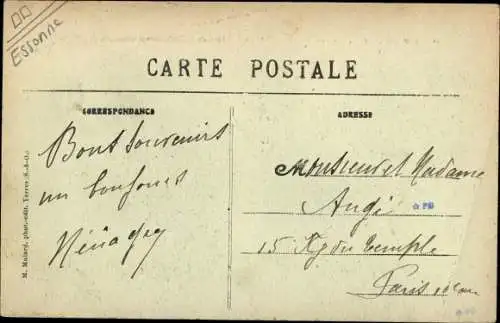 Essonne
CARTE POSTALE
CORRESPONDANCE
ADRESSE
Bons Souvenirs
un bonjour
Monsieur et Madame
Augé
15 Fg du Temple
Paris
M. Mulard, phot.-édit. Yerres (S.-&-O.)